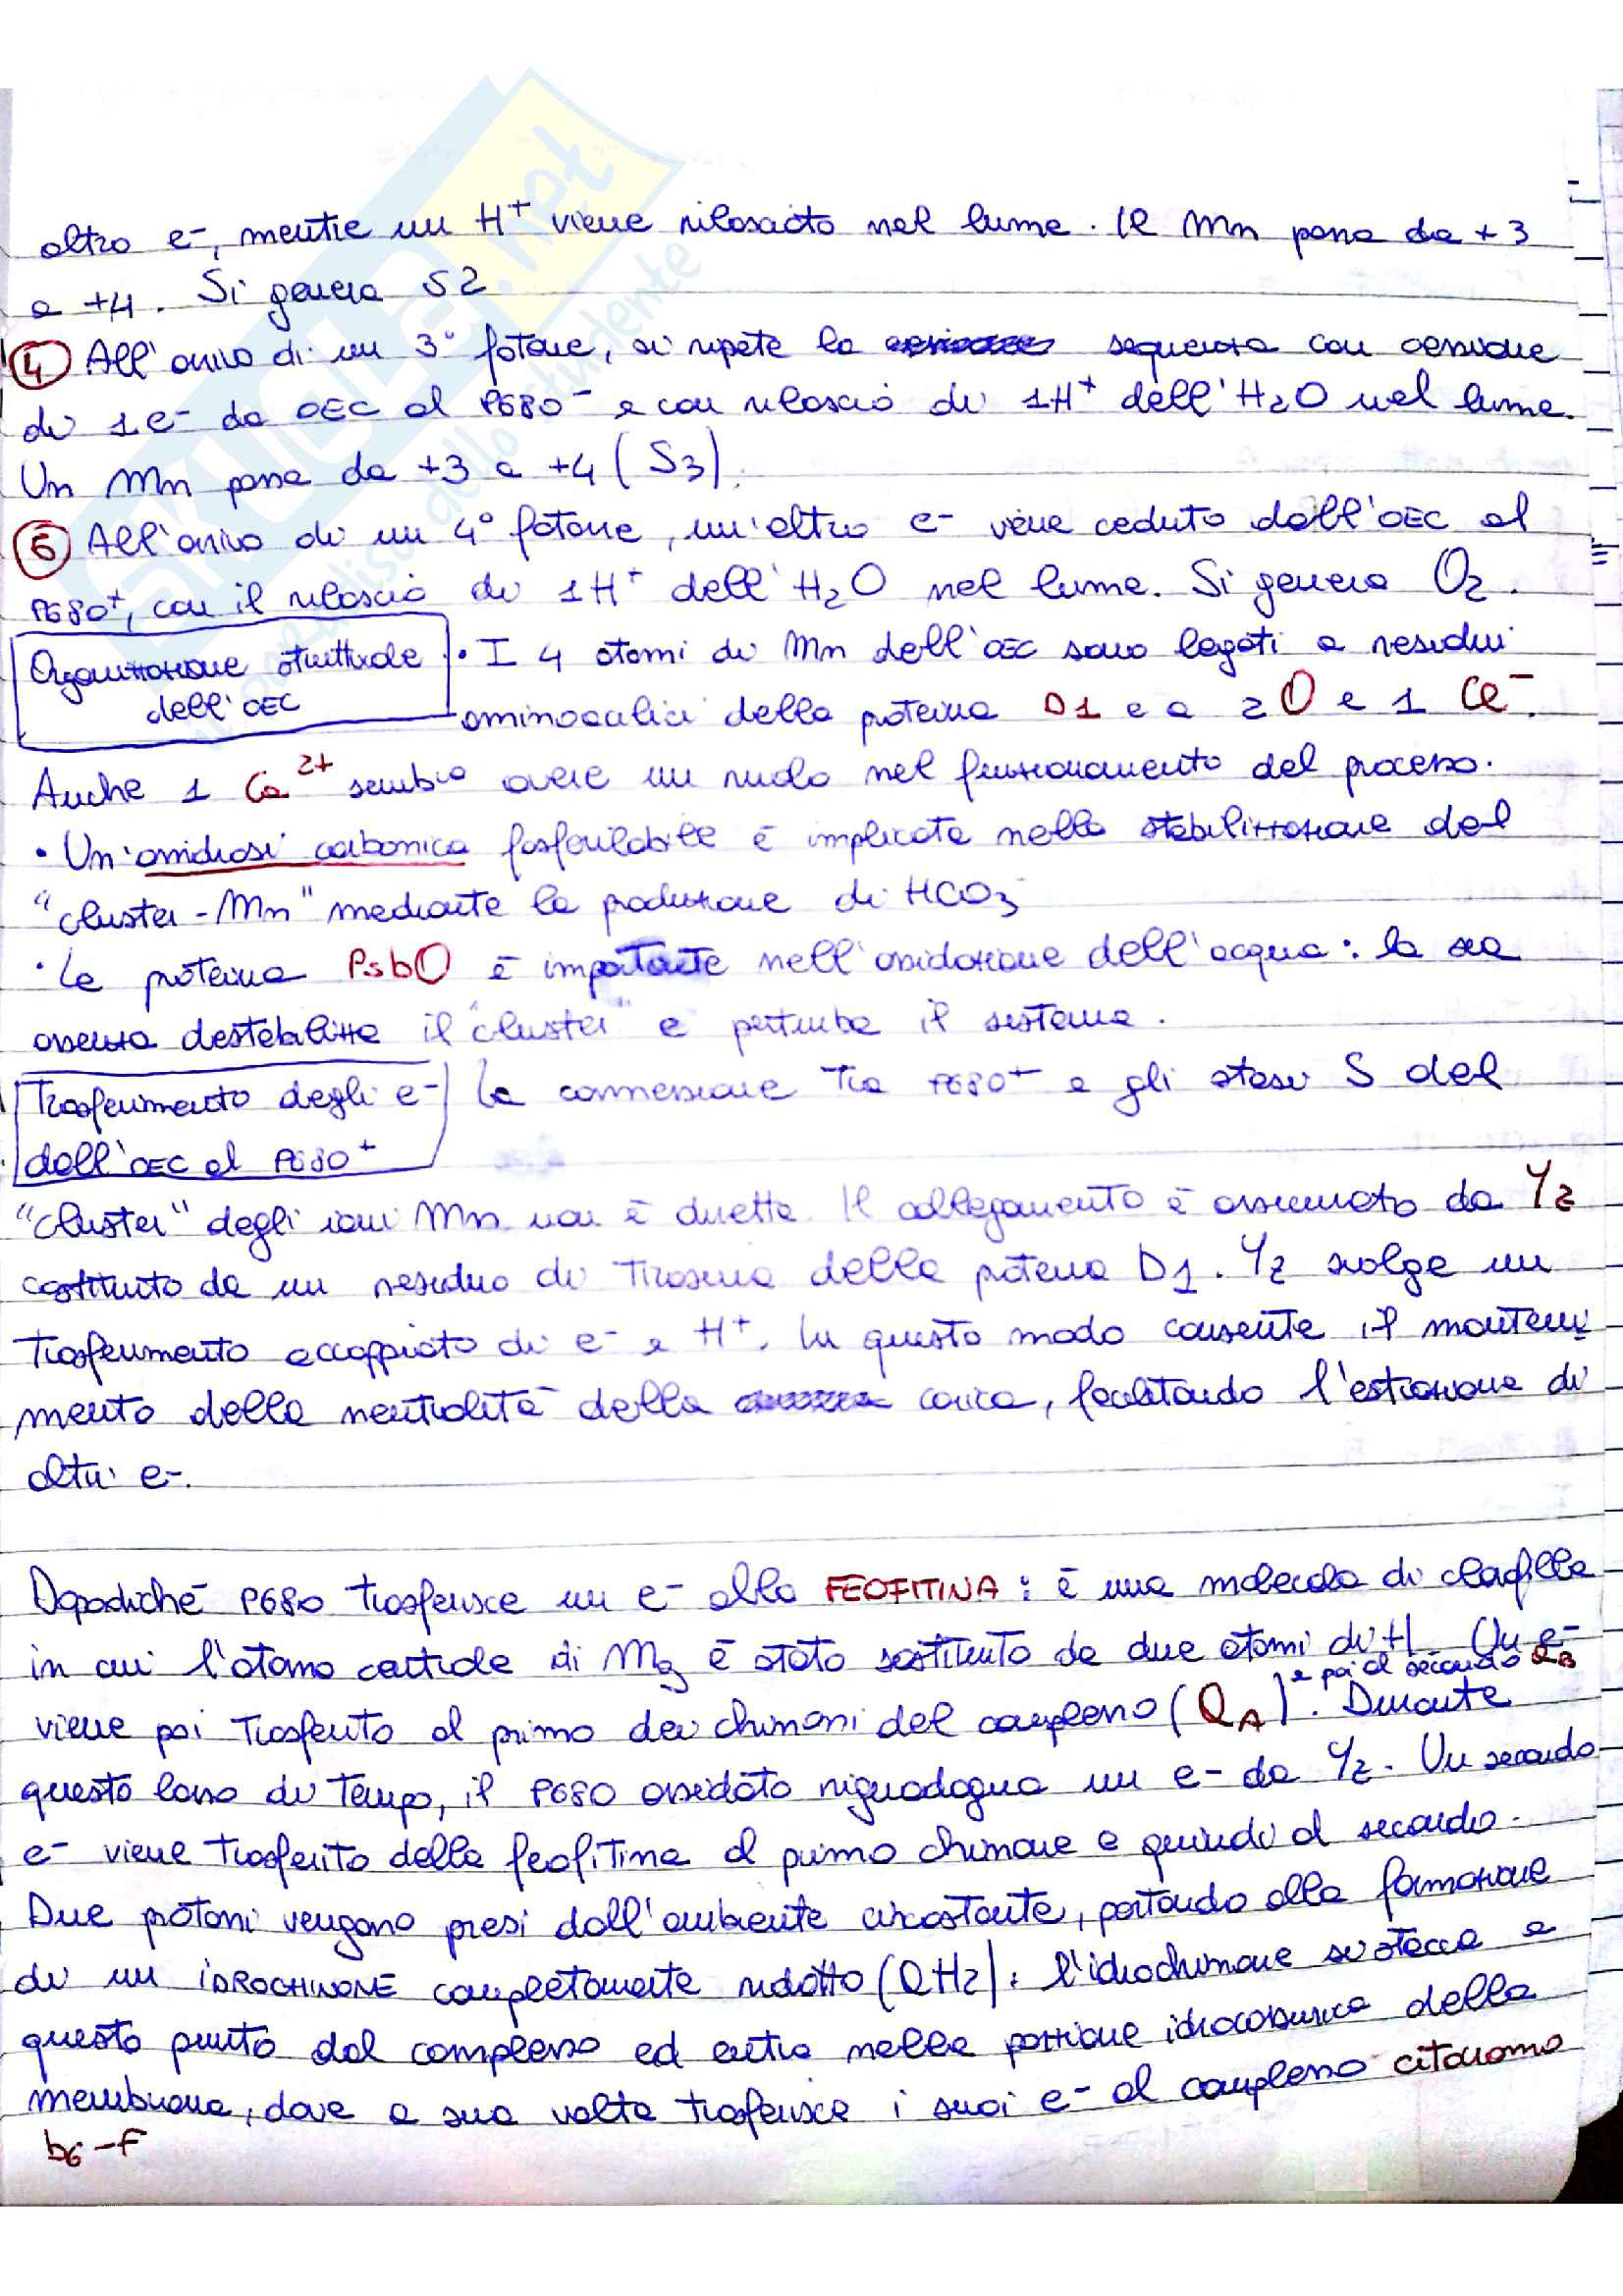 altro e-, mentre un H+ viene rilasciato nel lume. Il Mn passa da +3
a +4. Si genera S2
④ All'arrivo di un 3° fotone, si ripete la sequenza con cessione
di 1 e- da OEC al P680- e con rilascio di 1H+ dell'H2O nel lume.
Un Mn passa da +3 a +4 (S3).
⑥ All'arrivo di un 4° fotone, un'altro e- viene ceduto dall'OEC al
P680+, con il rilascio di 1H+ dell'H2O nel lume. Si genera O2.
Organizzazione strutturale dell'OEC
• I 4 atomi di Mn dell'OEC sono legati a residui
aminoacalici della proteina D1 e a 2 O e 1 Cl-.
Anche 1 Ca2+ sembra avere un ruolo nel funzionamento del processo.
• Un'anidrasi carbonica fosforilabile è implicata nella stabilizzazione del
"cluster-Mn" mediante la produzione di HCO3-
• La proteina PsbO è importante nell'ossidazione dell'acqua: la sua
assenza destabilizza il "cluster" e perturba il sistema.
Trasferimento degli e- dall'OEC al P680+
La connessione tra P680+ e gli stati S del
"cluster" degli ioni Mn non è diretta. Il collegamento è assicurato da Yz
costituito da un residuo di Tirosina della proteina D1. Yz svolge un
trasferimento accoppiato di e- e H+. In questo modo consente il manteni
mento della neutralità della carica, facilitando l'estrazione di
altri e-.
Dopodiché P680 trasferisce un e- alla FEOFITINA: è una molecola di clorofilla
in cui l'atomo centrale di Mg è stato sostituito da due atomi di H. Un e-
viene poi trasferito al primo dei chinoni del complesso (QA) e poi al secondo QB. Durante
questo lasso di tempo, il P680 ossidato riguadagna un e- da Yz. Un secondo
e- viene trasferito dalla feofitina al primo chinone e quindi al secondo.
Due protoni vengono presi dall'ambiente circostante, portando alla formazione
di un IDROCHINONE completamente ridotto (QH2); l'idrochinone si stacca a
questo punto dal complesso ed entra nella porzione idrocarburica della
membrana, dove a sua volta trasferisce i suoi e- al complesso citocromo
b6-F
SKUOLA.net